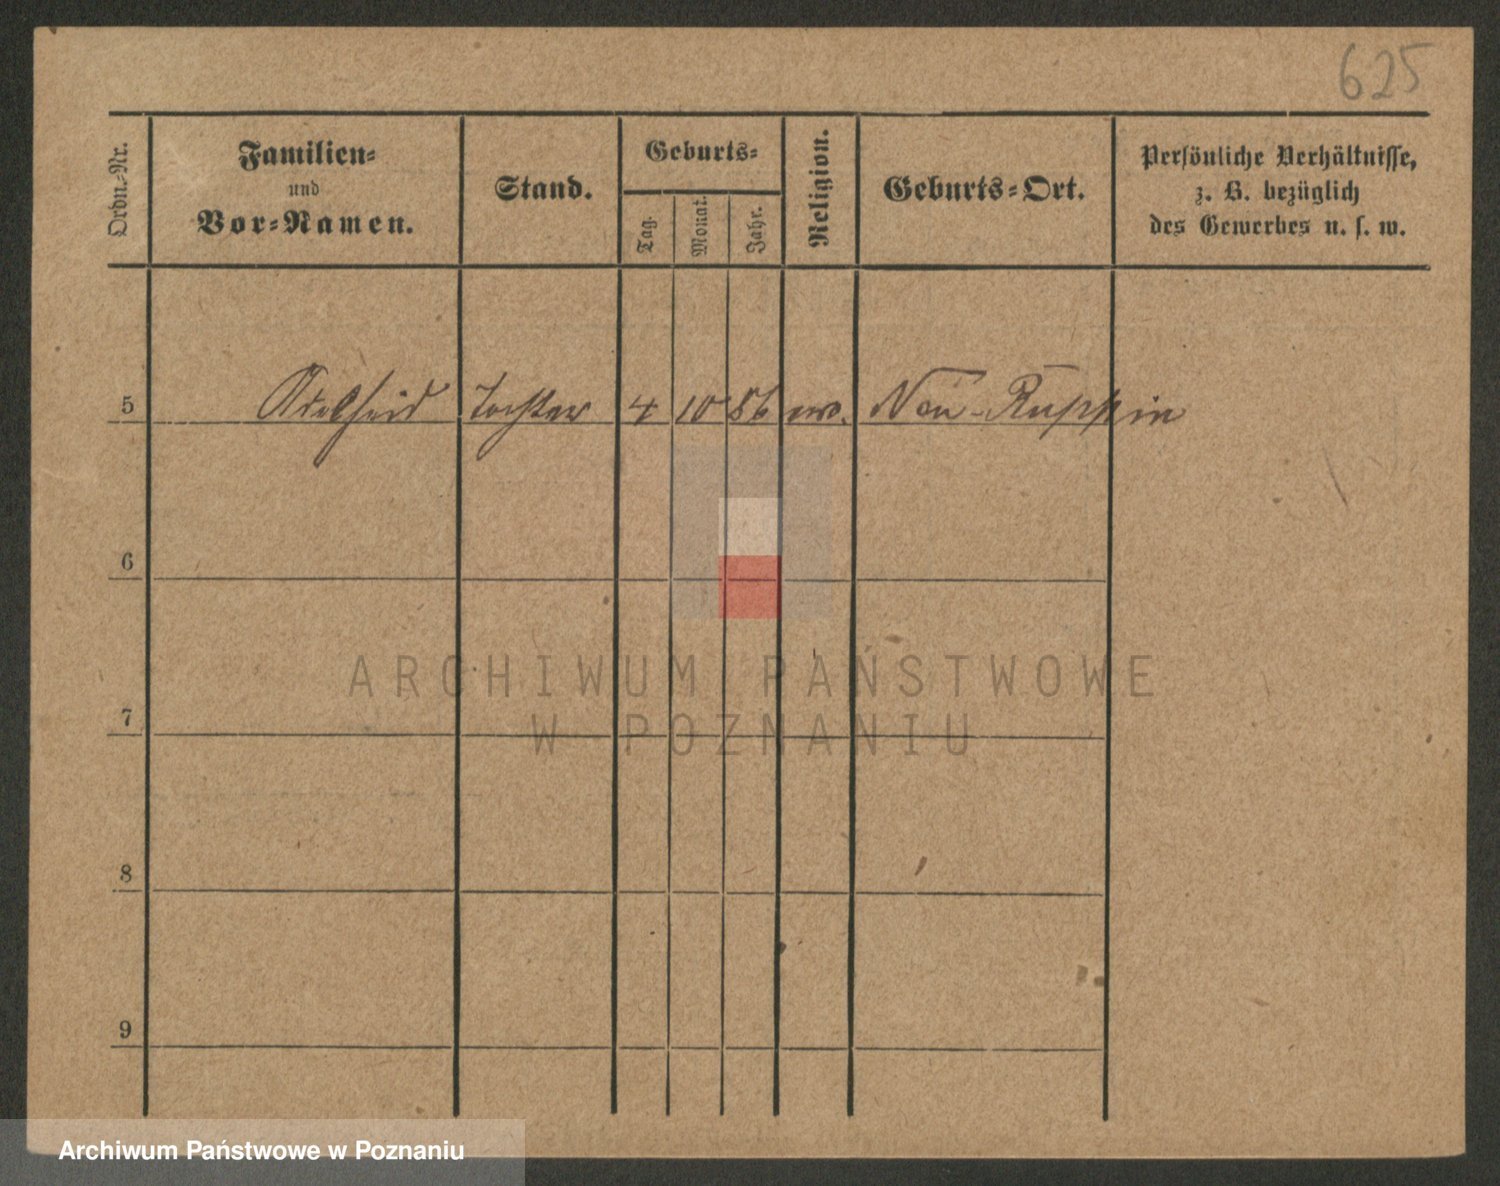 625
Ordn.-Nr.
Familien-
und
Vor-Namen.
Stand.
Geburts-
Tag.
Monat.
Jahr.
Religion.
Geburts-Ort.
Persönliche Verhältnisse,
z. B. bezüglich
des Gewerbes u. s. w.
5 Adelheid Tochter 4 10 86 ev. Neu-Ruppin
6
7
8
9
ARCHIWUM PAŃSTWOWE
W POZNANIU
Archiwum Państwowe w Poznaniu